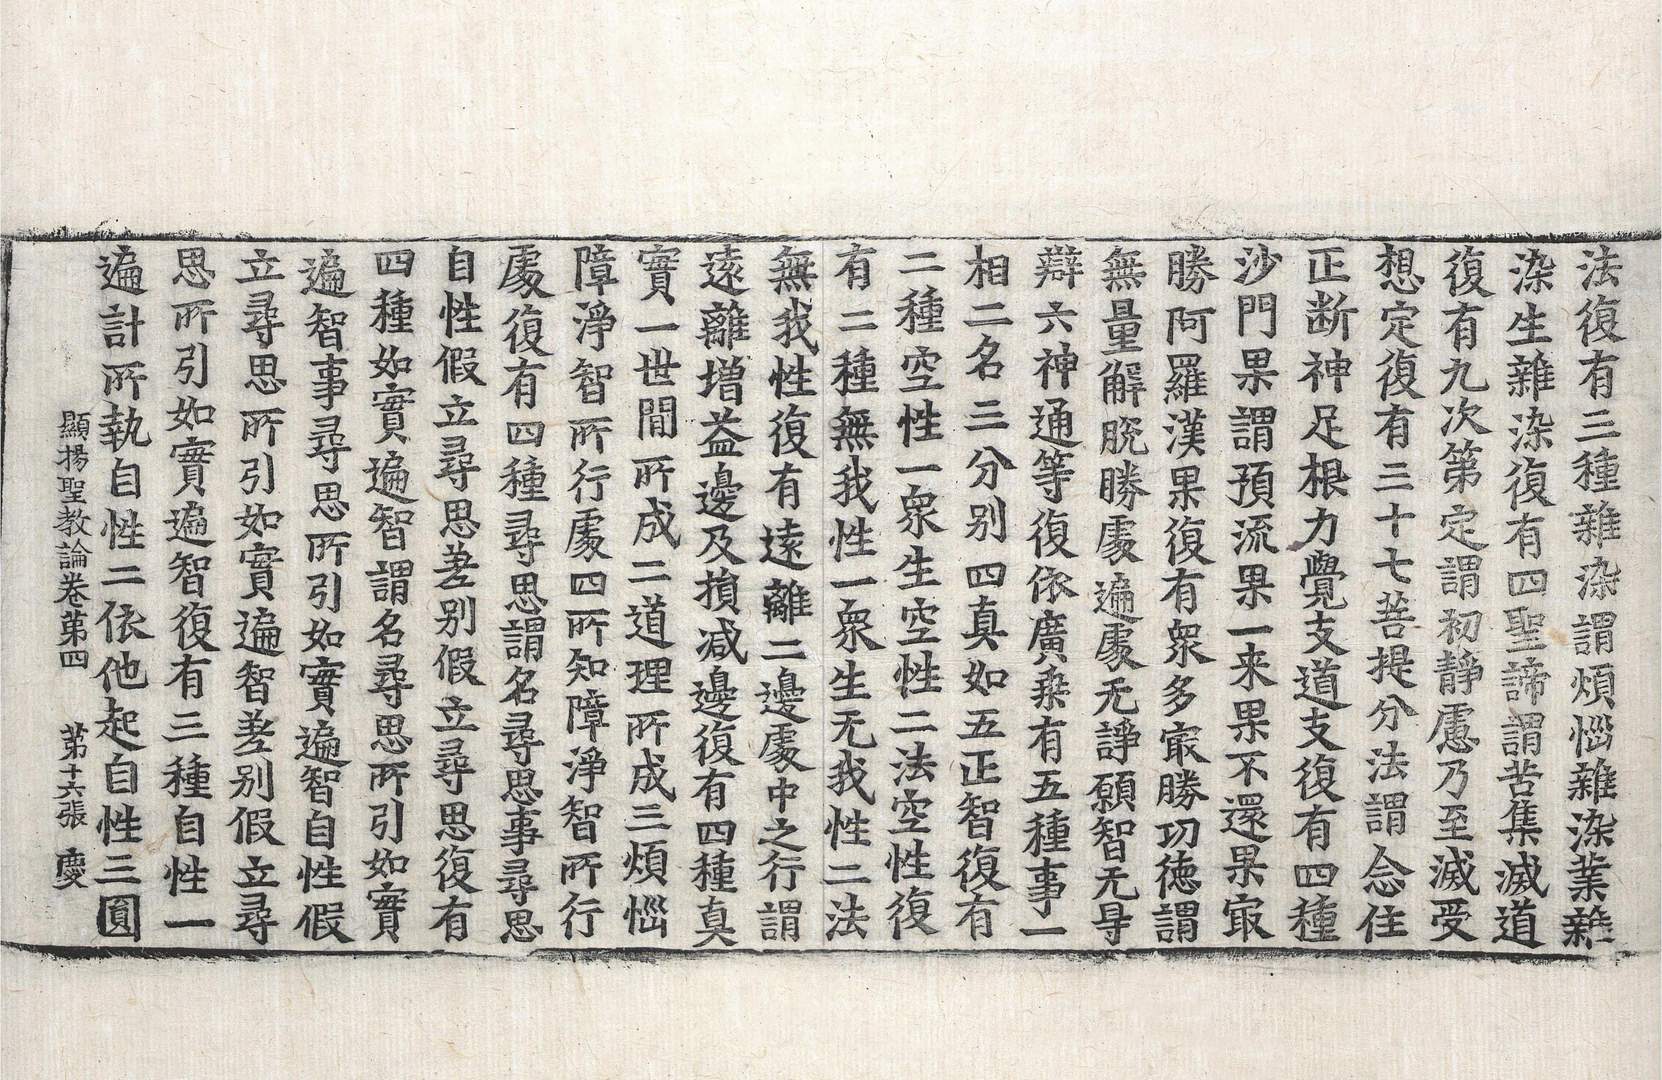 法復有三種雜染謂煩惱雜染業雜
染生雜染復有四聖諦謂苦集滅道
復有九次第定謂初靜慮乃至滅受
想定復有三十七菩提分法謂念住
正断神足根力覺支道支復有四種
沙門果謂預流果一来果不還果㝡
勝阿羅漢果復有衆多㝡勝㓛徳謂
無量解脫勝䖏遍䖏无諍願智无㝵
辯六神通等復依廣乗有五種事一
相二名三分别四真如五正智復有
二種空性一衆生空性二法空性復
有二種無我性一衆生无我性二法
無我性復有逺離二邊䖏中之行謂
逺離增益邊及損减邊復有四種真
實一世間所成二道理所成三煩惱
障淨智所行䖏四所知障淨智所行
䖏復有四種尋思謂名尋思事尋思
自性假立尋思差别假立尋思復有
四種如實遍智謂名尋思所引如實
遍智事尋思所引如實遍智自性假
立尋思所引如實遍智差别假立尋
思所引如實遍智復有三種自性一
遍計所執自性二依他起自性三圓
顯揚聖教論卷第四 第十六張 慶